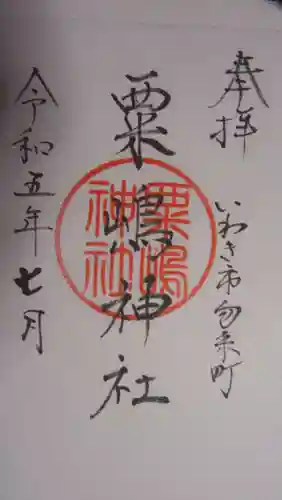 奉拝
いわき市勿来町
粟嶋神社
粟嶋神社
令和五年七月